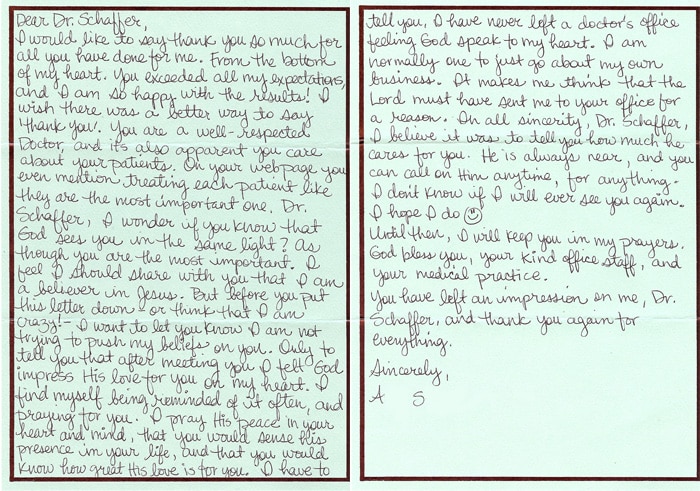 Dear Dr. Schaffer,
I would like to say thank you so much for
all you have done for me. From the bottom
of my heart. You exceeded all my expectations,
and I am so happy with the results! I
wish there was a better way to say
'thank you'. You are a well-respected
Doctor, and it's also apparent you care
about your patients. On your webpage you
even mention treating each patient like
they are the most important one. Dr.
Schaffer, I wonder if you know that
God sees you in the same light? As
though you are the most important. I
feel I should share with you that I am
a believer in Jesus. But before you put
this letter down - or think that I am
crazy! - I want to let you know I am not
trying to push my beliefs on you. Only to
tell you that after meeting you I felt God
impress His love for you on my heart. I
find myself being reminded of it often, and
praying for you. I pray His peace in your
heart and mind, that you would sense his
presence in your life, and that you would
know how great His love is for you. I have to
tell you, I have never left a doctor's office
feeling God speak to my heart. I am
normally one to just go about my own
business. It makes me think that the
Lord must have sent me to your office for
a reason. In all sincerity, Dr. Schaffer,
I believe it was to tell you how much he
cares for you. He is always near, and you
can call on Him anytime, for anything.
I don't know if I will ever see you again.
I hope I do ☺
Until then, I will keep you in my prayers.
God bless you, your kind office staff, and
your medical practice.
You have left an impression on me, Dr.
Schaffer, and thank you again for
everything.
Sincerely,
A S